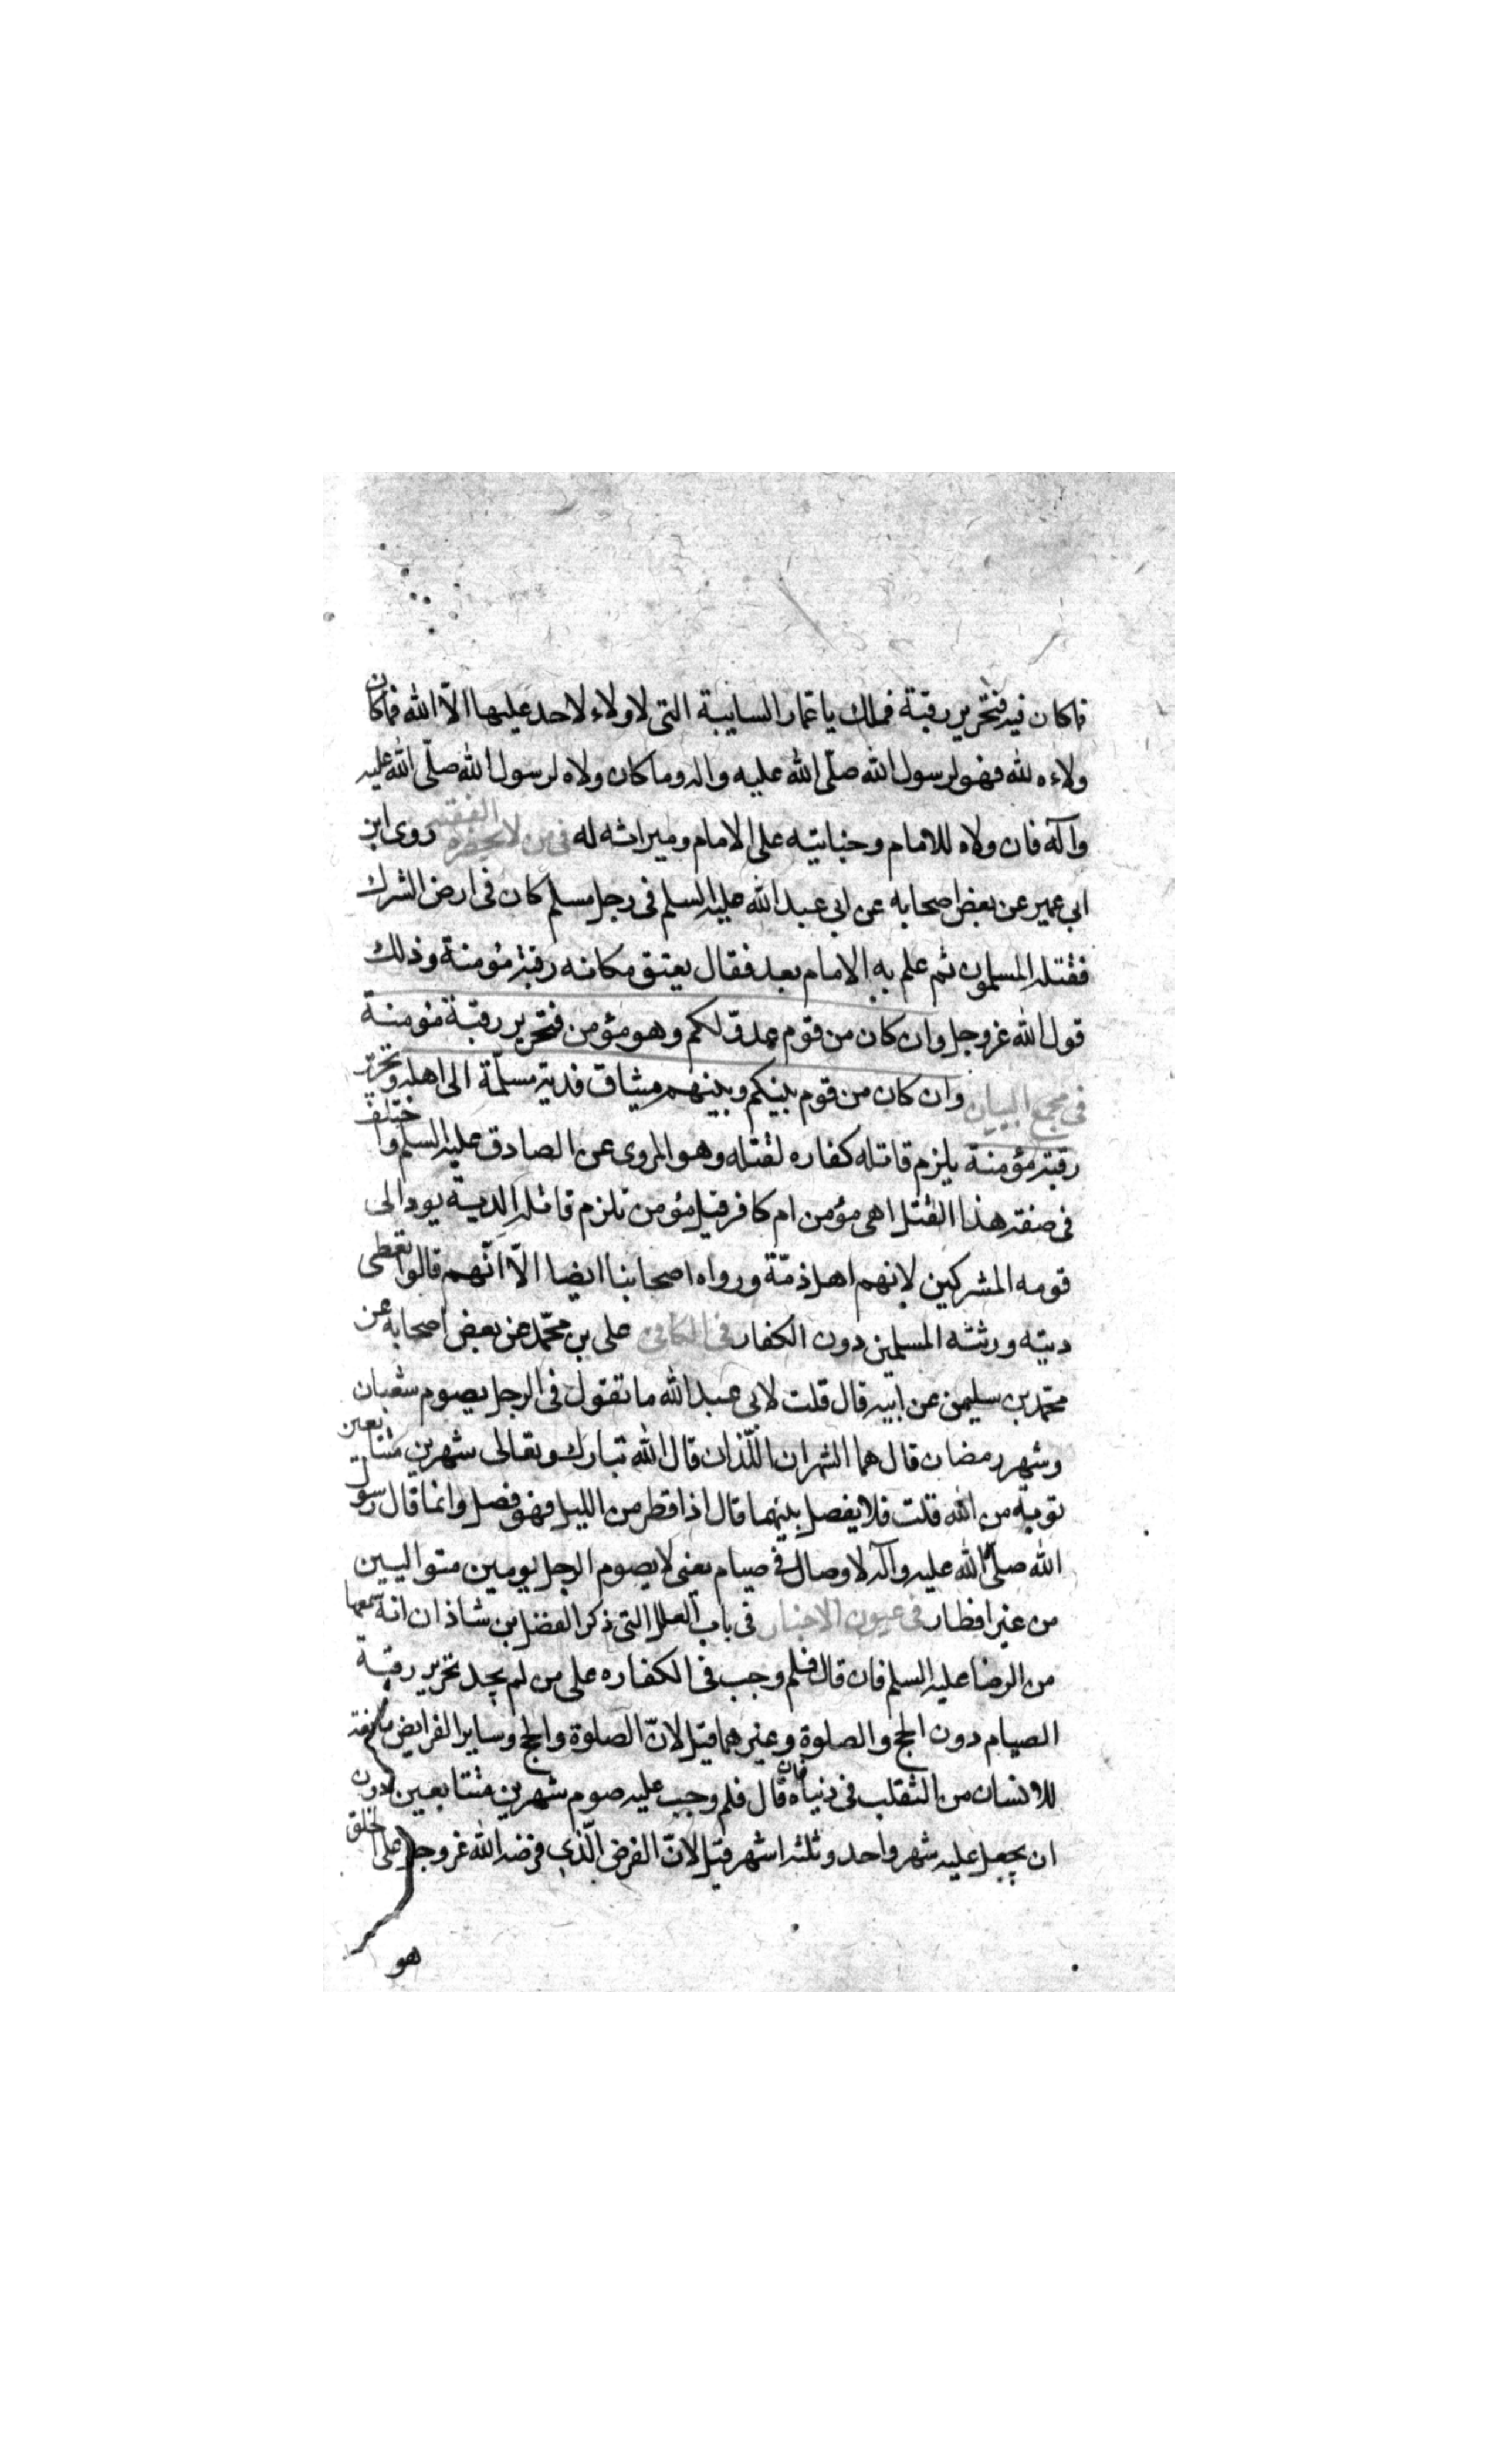 فما كان فيه فتحرير رقبة فملك يا عمار السايبة التى لا ولاء لاحد عليها الّا الله فما كان
ولاءه لله فهو لرسول الله صلّى الله عليه واله وما كان ولاه لرسول الله صلّى الله عليه
وآله فان ولاه للامام وجنايته على الامام وميراثه له فى من لا يحضره الفقيه روى ابن
ابى عمير عن بعض اصحابه عن ابى عبد الله عليه السلم فى رجل مسلم كان فى ارض الشرك
فقتله المسلمون ثم علم به الامام بعد فقال يعتق مكانه رقبة مؤمنة وذلك
قول الله عز وجل وان كان من قوم عدوّ لكم وهو مؤمن فتحرير رقبة مؤمنة
فى مجمع البيان وان كان من قوم بينكم وبينهم ميثاق فدية مسلّمة الى اهله وتحرير
رقبة مؤمنة يلزم قاتله كفاره لقتله وهو المروى عن الصادق عليه السلم واختلف
فى صفة هذا القتل اهى مؤمن ام كافر قيل مؤمن تلزم قاتله الدية يودا الى
قومه المشركين لانهم اهل ذمّة ورواه اصحابنا ايضا الّا انّهم قالوا تعطى
ديته ورثته المسلمين دون الكفار فى الكافى على بن محمّد عن بعض اصحابه عن
محمّد بن سليمن عن ابيه قال قلت لابى عبد الله ما تقول فى الرجل يصوم شعبان
وشهر رمضان قال هما الشهران اللّذان قال الله تبارك وتعالى شهرين متتابعين
توبة من الله قلت فلا يفصل بينهما قال اذا فطر من الليل فهو فصل وانما قال رسول
الله صلّى الله عليه وآله لا وصال فى صيام يعنى لا يصوم الرجل يومين متواليين
من غير افطار فى عيون الاخبار فى باب العلل التى ذكر الفضل بن شاذان انه سمعها
من الرضا عليه السلم فان قال فلم وجب فى الكفاره على من لم يجد تحرير رقبة
الصيام دون الحج والصلوة وغيرهما قيل لانّ الصلوة والحج وساير الفرايض مانعة
للانسان من التقلب فى دنياه فان قال فلم وجب عليه صوم شهرين متتابعين دون
ان يجعل عليه شهر واحد وثلثة اشهر قيل لانّ الفرض الّذى فرضه الله عز وجل على الخلق
هو